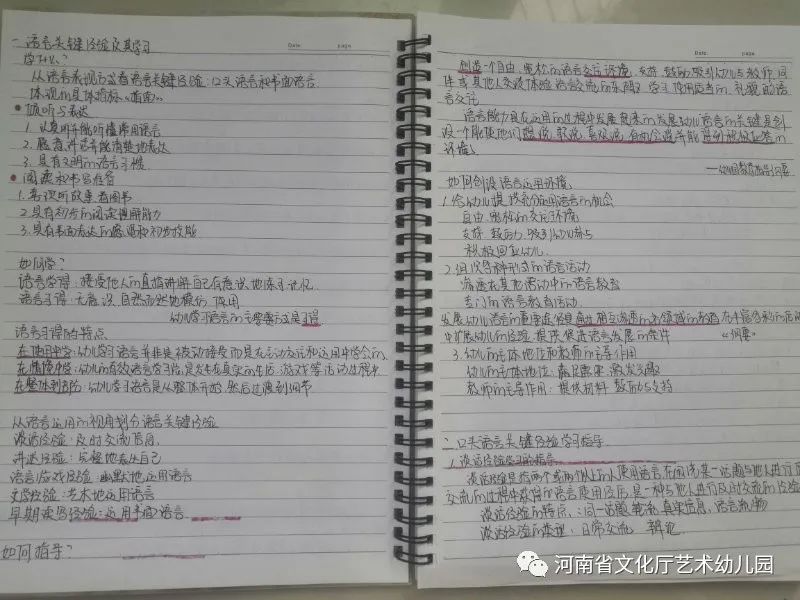 一 语言关键经验及其学习
学什么?
从语言表现形式看语言关键经验:口头语言和书面语言
体现的具体指标《指南》
倾听与表达
1. 认真听并能听懂常用语言
2. 愿意讲话并能清楚地表达
3. 具有文明的语言习惯
阅读和书写准备
1. 喜欢听故事看图书
2. 具有初步的阅读理解能力
3. 具有书面表达的愿望和初步技能
如何学?
语言学得:接受他人的直接讲解自己有意识地练习记忆
语言习得:无意识、自然而然地模仿、使用
幼儿学习语言的主要方式是习得
语言习得的特点
在使用中学:幼儿学习语言并非是被动接受而是在互动交流和运用中学会的
在情境中学:幼儿的有效语言学习总是发生在真实的生活、游戏等活动过程中
在整体到部分:幼儿学习语言是从整体开始,然后过渡到细节
从语言运用的视角划分语言关键经验
谈话经验:及时交流信息
讲述经验:完整地表达自己
语言游戏经验:幽默地运用语言
文学经验:艺术地运用语言
早期读写经验:运用书面语言
如何指导?
Date page
创造一个自由、宽松的语言交往环境,支持、鼓励、吸引幼儿与教师、同
伴或其他人交谈,体验语言交流的乐趣,学习使用适当的、礼貌的语
言交往
语言能力是在运用的过程中发展起来的,发展幼儿语言的关键是创
设一个能使他们想说、敢说、喜欢说、有机会说并能得到积极应答的
环境。
——幼儿园教育指导纲要
如何创设语言运用环境
1. 给幼儿提供充分运用语言的机会
自由、宽松的交往环境
支持、鼓励、吸引幼儿参与
积极回应幼儿
2. 组织多种形式的语言活动
渗透在其他活动中的语言教育
专门的语言教育活动
发展幼儿语言的重要途径是通过相互渗透的各领域的教育,在丰富多彩的活动
中扩展幼儿的经验,提供促进语言发展的条件 《纲要》
3. 幼儿的主体地位和教师的主导作用
教师的主导作用:提供材料、鼓励与支持
二 口头语言关键经验学习指导
1. 谈话经验学习的指导
谈话经验是指两个或两个以上的人使用语言在围绕某一话题与他人进行
谈话经验的类型:日常交流、辩论
河南省文化厅艺术幼儿园